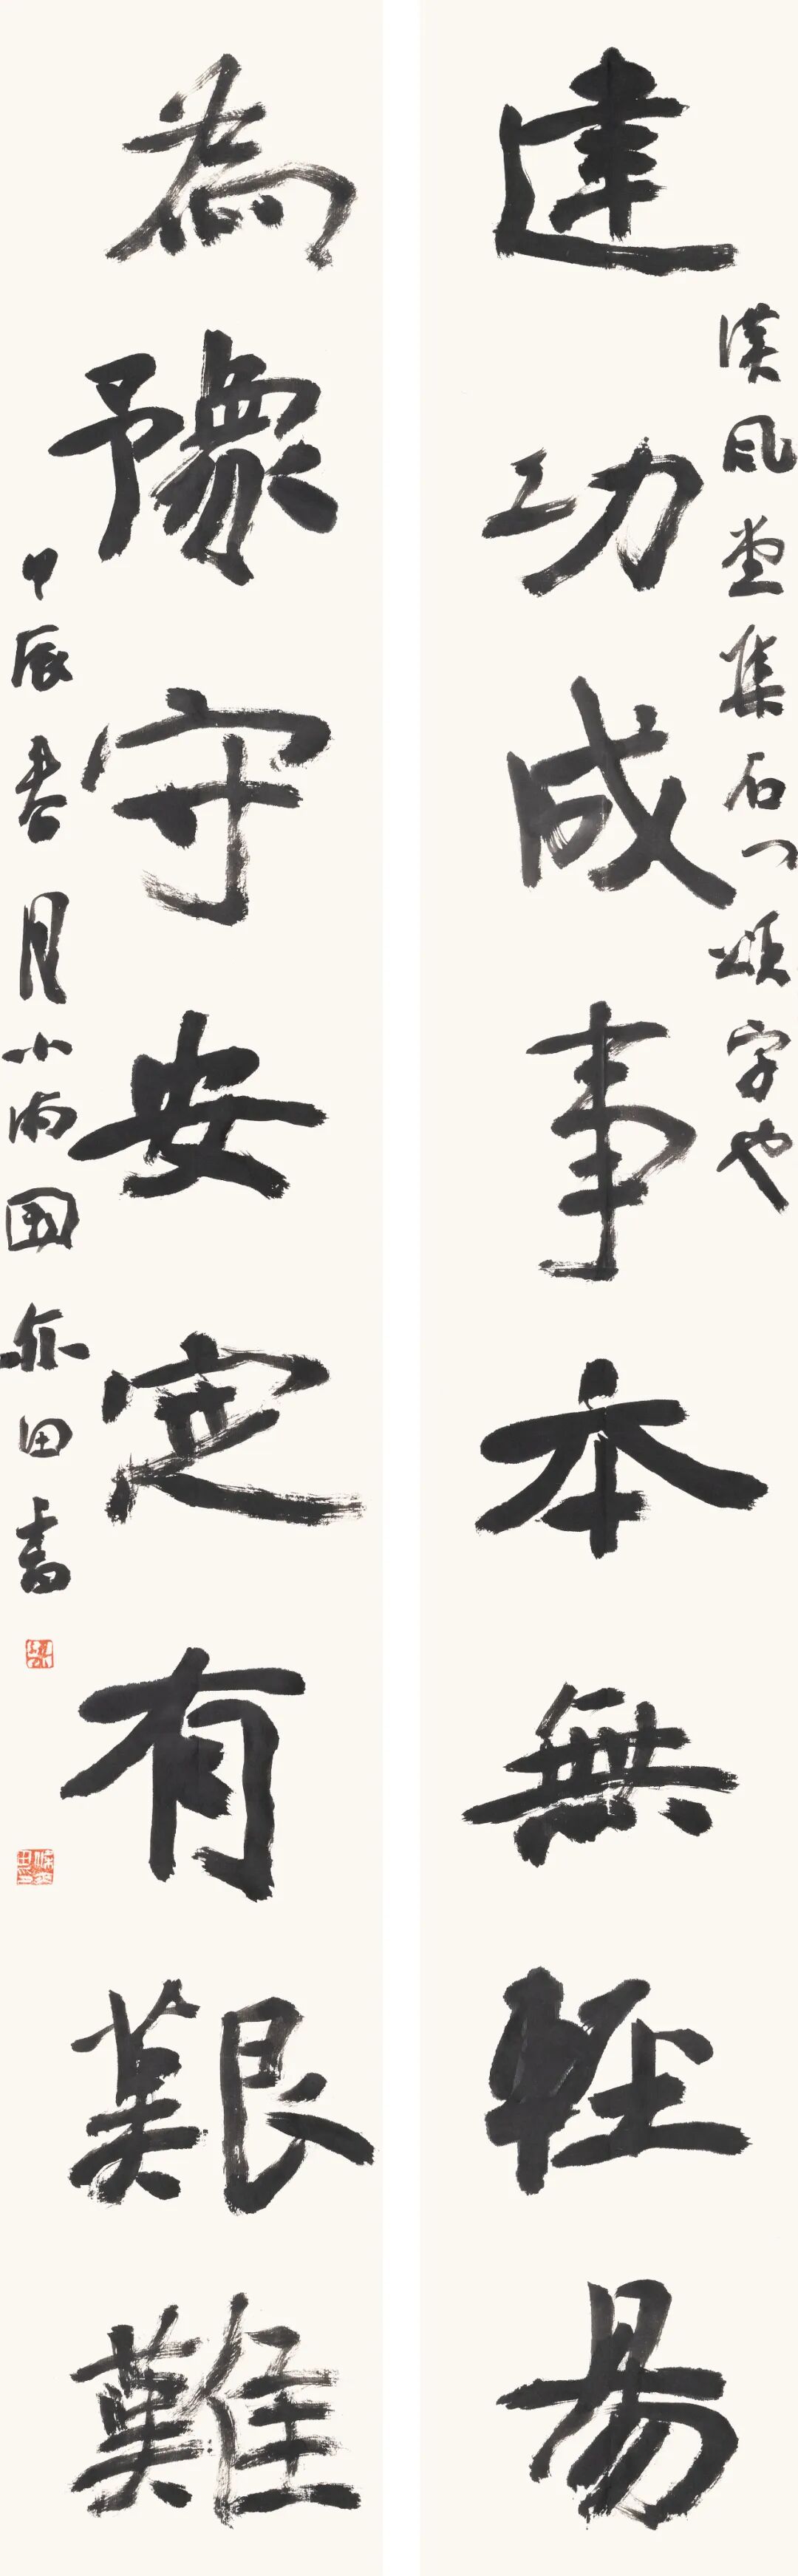 建功成事本無輕易
漢風堂集石門頌字也
為豫守安定有艱難
甲辰春月小雨園亦田書